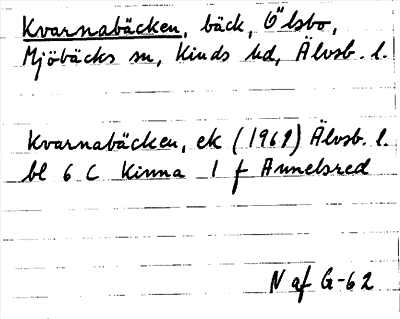 Kvarnabäcken, bäck, Ölsbo,
Mjöbäcks sn, Kinds hd, Älvsb. l.
Kvarnabäcken, ek (1969) Älvsb. l.
bl 6 C Kinna 1 f Annelsred
N af G-62